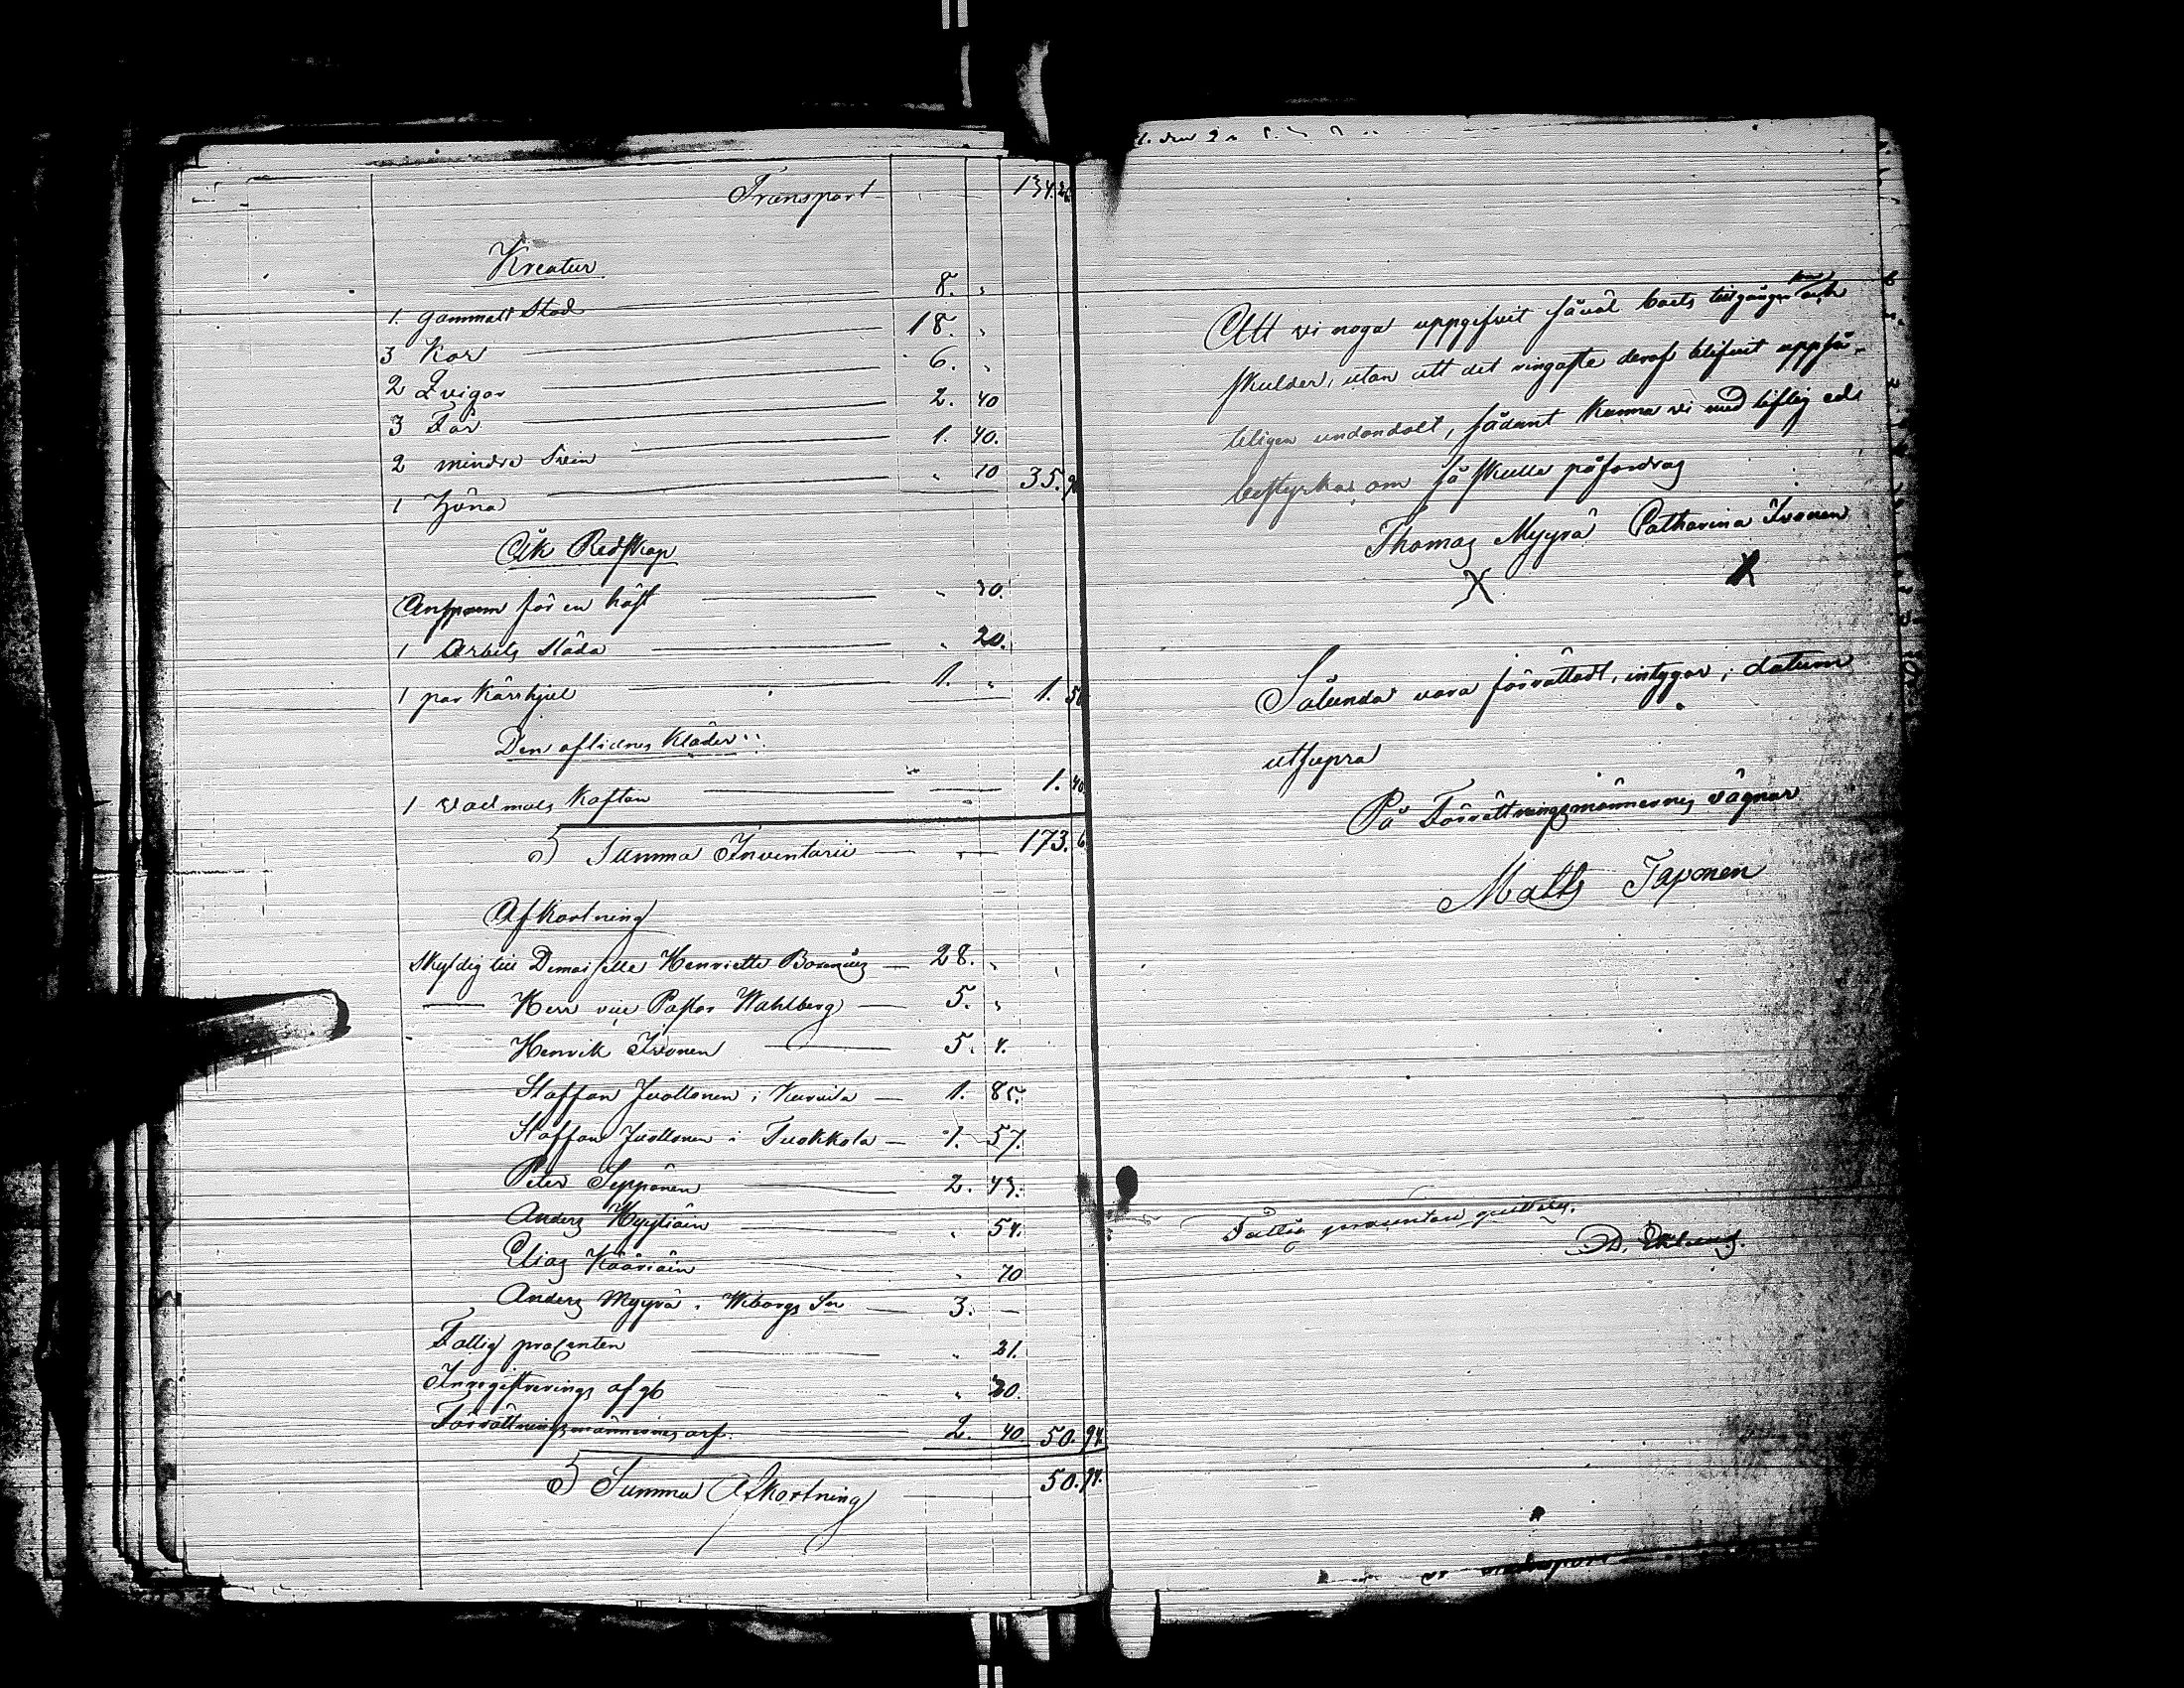 Transport 134. 2
Kreatur
1. gammalt Stod 8. "
3 Kor 18. "
2 Qvigor 6. "
3 Får 2. 40
2 mindre Svin 1. 40.
1 Höna " 10 35. 90
Åk Redskap
Anspann för en häst " 30.
1 Arbets Släda " 20.
1 par Kärrhjul 1. " 1. 50
Den aflidnes Kläder
1 Vadmals Kaftan 1. 40
S Summa Inventarii 173. 6
Afkortning
Skyldig till Demoiselle Henriette Borenius 28. "
Herr vice Pastor Wahlberg 5. "
Henrik Ivonen 5. 4.
Staffan Juvonen i Kurvila 1. 85.
Staffan Juvonen i Tuokkola 1. 57.
Peter Seppänen 2. 43.
Anders Hyytiäin " 54.
Elias Kääriäin " 70
Anders Myyrä i Wiborgs Sn 3. —
Fattig procenten " 21.
Inregistrerings afg " 20.
Förrättningsmännernes arf. 2. 40 50. 94.
S Summa Afkortning 50. 94.
Att vi noga uppgifvit såväl boets tillgångar som
skulder, utan att det ringaste deraf blifvit uppså-
teligen undandolt, sådant kunna vi med liflig ed
bestyrka, om så skulle påfordras
Thomas Myyrä Catharina Ivonen
X X
Sålunda vara förrättadt, intygar; datum
utsupra
På Förrättningsmännernes vägnar
Matts Taponen
Fattig procenten quitteras.
D. Eklund.